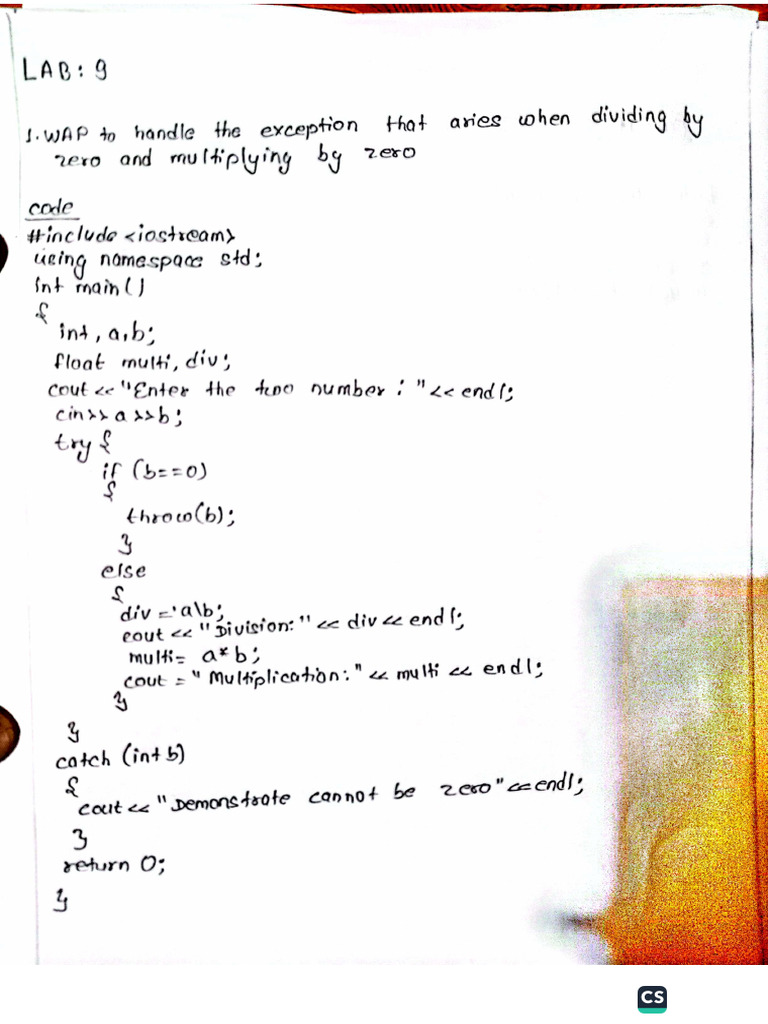 LAB: 9
1. WAP to handle the exception that aries when dividing by
zero and multiplying by zero
code
#include <iostream>
using namespace std;
int main()
{
int, a,b;
float multi, div;
cout << "Enter the two number : "<< endl;
cin>> a >>b;
try {
if (b==0)
{
throw(b);
}
else
{
div = a\b;
cout << "Division:" << div << endl;
multi= a*b;
cout = "Multiplication:" << multi << endl;
}
}
catch (int b)
{
cout<< "Demonstrate cannot be zero"<<endl;
}
return 0;
}
CS